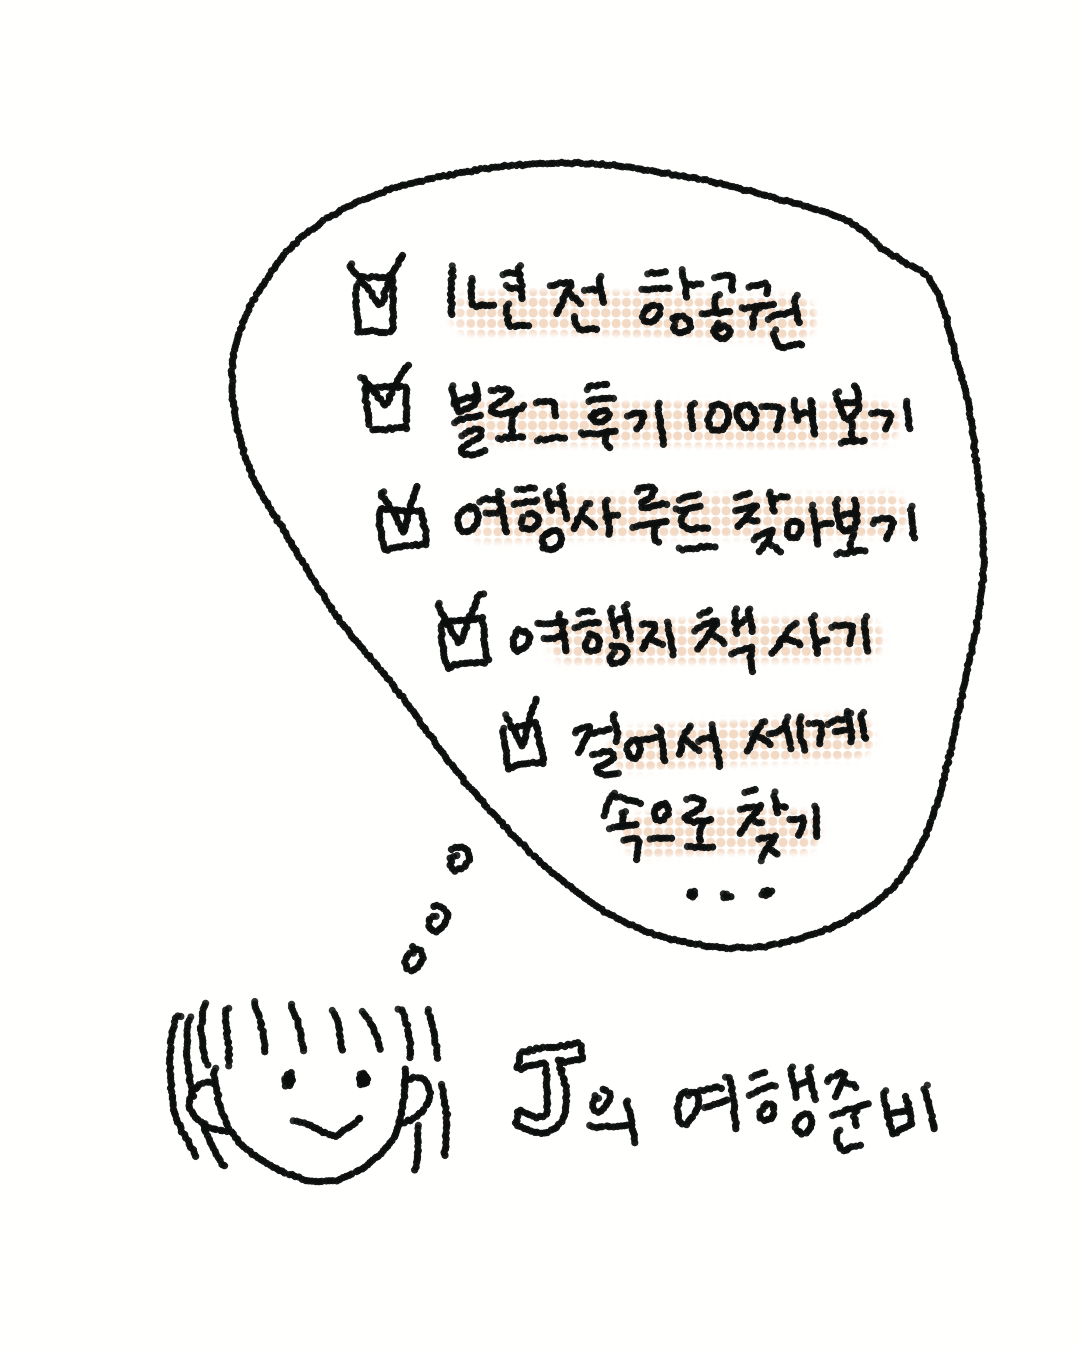 1년 전 항공권
블로그 후기 100개 보기
여행사 루트 찾아보기
여행지 책 사기
걸어서 세계
속으로 찾기
...
J의 여행준비